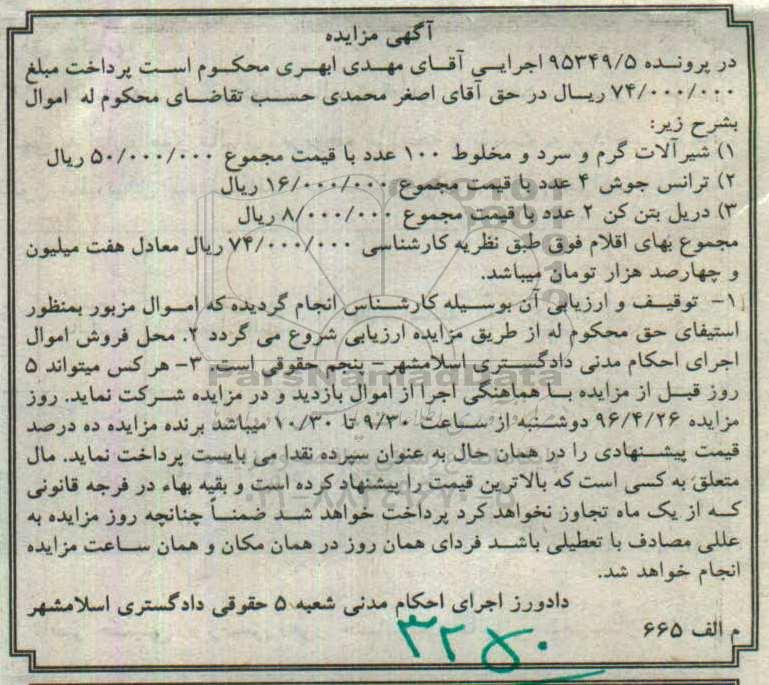 آگهی مزایده
در پرونده ۹۵۳۴۹/۵ اجرایی آقای مهدی ابهری محکوم است پرداخت مبلغ
۷۴/۰۰۰/۰۰۰ ریال در حق آقای اصغر محمدی حسب تقاضای محکوم له اموال
بشرح زیر:
۱) شیرآلات گرم و سرد و مخلوط ۱۰۰ عدد با قیمت مجموع ۵۰/۰۰۰/۰۰۰ ریال
۲) ترانس جوش ۴ عدد با قیمت مجموع ۱۶/۰۰۰/۰۰۰ ریال
۳) دریل بتن کن ۲ عدد با قیمت مجموع ۸/۰۰۰/۰۰۰ ریال
مجموع بهای اقلام فوق طبق نظریه کارشناسی ۷۴/۰۰۰/۰۰۰ ریال معادل هفت میلیون
و چهارصد هزار تومان میباشد.
۱- توقیف و ارزیابی آن بوسیله کارشناس انجام گردیده که اموال مزبور بمنظور
استیفای حق محکوم له از طریق مزایده ارزیابی شروع می گردد ۲. محل فروش اموال
اجرای احکام مدنی دادگستری اسلامشهر- پنجم حقوقی است ۳- هر کس میتواند ۵
روز قبل از مزایده با هماهنگی اجرا از اموال بازدید و در مزایده شرکت نماید. روز
مزایده ۹۶/۴/۲۶ دوشنبه از ساعت ۹/۳۰ تا ۱۰/۳۰ میباشد برنده مزایده ده درصد
قیمت پیشنهادی را در همان حال به عنوان سپرده نقدا می بایست پرداخت نماید. مال
متعلق به کسی است که بالاترین قیمت را پیشنهاد کرده است و بقیه بهاء در فرجه قانونی
که از یک ماه تجاوز نخواهد کرد پرداخت خواهد شد ضمناً چنانچه روز مزایده به
عللی مصادف با تعطیلی باشد فردای همان روز در همان مکان و همان ساعت مزایده
انجام خواهد شد.
دادورز اجرای احکام مدنی شعبه ۵ حقوقی دادگستری اسلامشهر
م الف ۶۶۵
ParsNamadData